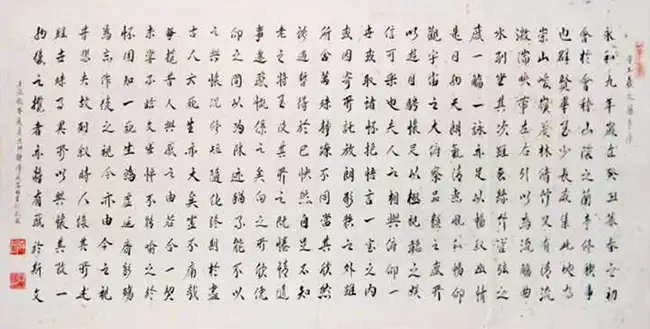 永和九年歲在癸丑暮春之初
會於會稽山陰之蘭亭修禊事
也群賢畢至少長咸集此地有
崇山峻嶺茂林修竹又有清流
激湍映帶左右引以為流觴曲
水列坐其次雖無絲竹管弦之
盛一觴一詠亦足以暢敘幽情
是日也天朗氣清惠風和暢仰
觀宇宙之大俯察品類之盛所
以遊目騁懷足以極視聽之娛
信可樂也夫人之相與俯仰一
世或取諸懷抱悟言一室之內
或因寄所託放浪形骸之外雖
舍萬殊靜躁不同當其欣
遇暫得於己快然自足不知
老之將至及其所之既惓情隨
事遷感慨係之矣向之所欣俛
仰之間以為陳跡猶不能不以
之興懷況修短隨化終期於盡
古人云死生亦大矣豈不痛哉
每攬昔人興感之由若合一契
未嘗不臨文嗟悼不能喻之於
懷固知一死生為虛誕齊彭殤
為妄作後之視今亦由今之視
昔悲夫故列敘時人錄其所述
雖世殊事異所以興懷其致一
之攬者亦將有感於斯文